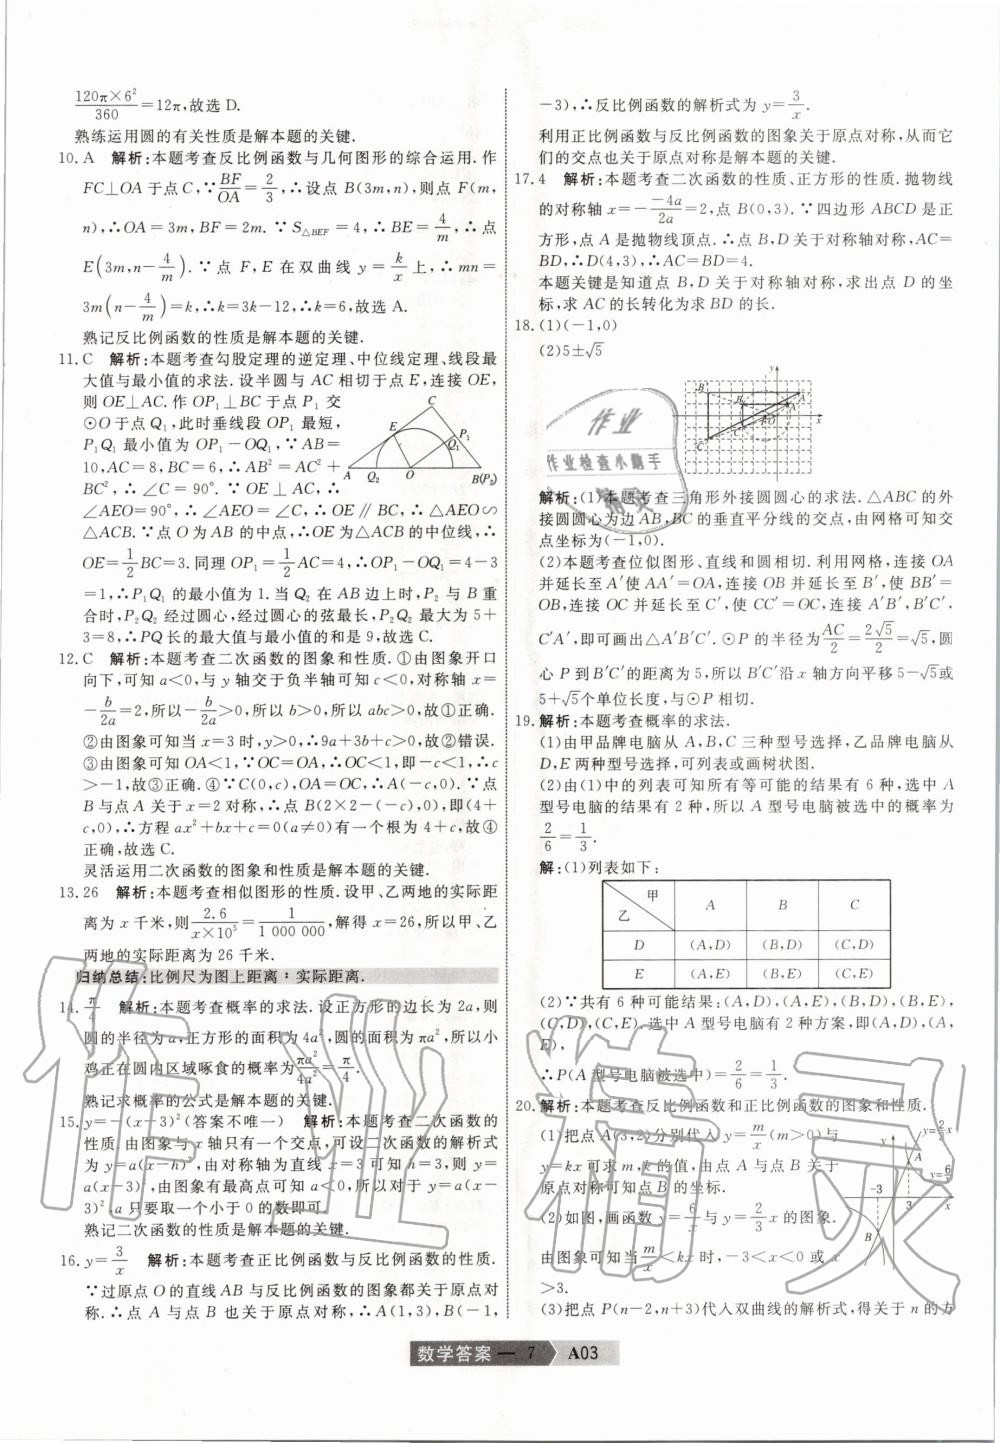 120π×6²/360=12π,故选 D.
熟练运用圆的有关性质是解本题的关键.
10. A 解析:本题考查反比例函数与几何图形的综合运用.作
FC⊥OA于点C,∵BF/OA=2/3,∴设点B(3m,n),则点F(m,
n),∴OA=3m,BF=2m.∵S△BEF=4,∴BE=4/m,∴点
E(3m,n-4/m).∵点F,E在双曲线y=k/x上,∴mn=
3m(n-4/m)=k,∴k=3k-12,∴k=6,故选A.
熟记反比例函数的性质是解本题的关键.
11. C 解析:本题考查勾股定理的逆定理、中位线定理、线段最
大值与最小值的求法.设半圆与AC相切于点E,连接OE,
则OE⊥AC.作OP₁⊥BC于点P₁交
⊙O于点Q₁,此时垂线段OP₁最短,
P₁Q₁最小值为OP₁-OQ₁,∵AB=
10,AC=8,BC=6,∴AB²=AC²+
BC²,∴∠C=90°.∵OE⊥AC,∴
∠AEO=90°,∴∠AEO=∠C,∴OE∥BC,∴△AEO∽
△ACB.∵点O为AB的中点,∴OE为△ACB的中位线,∴
OE=1/2BC=3.同理OP₁=1/2AC=4,∴OP₁-OQ₁=4-3
=1,∴P₁Q₁的最小值为1.当Q₂在AB边上时,P₂与B重
合时,P₂Q₂经过圆心,经过圆心的弦最长,P₂Q₂最大为5+
3=8,∴PQ长的最大值与最小值的和是9,故选C.
C
E
P₁
Q₁
A
Q₂
O
B(P₂)
12. C 解析:本题考查二次函数的图象和性质.①由图象开口
向下,可知a<0,与y轴交于负半轴可知c<0,对称轴x=
-b/2a=2,所以-b/2a>0,所以b>0,所以abc>0,故①正确.
②由图象可知当x=3时,y>0,∴9a+3b+c>0,故②错误.
③由图象可知OA<1,∵OC=OA,∴OC<1,即-c<1,∴c
>-1,故③正确.④∵C(0,c),OA=OC,∴A(-c,0).∵点
B与点A关于x=2对称,∴点B(2×2-(-c),0),即(4+
c,0),∴方程ax²+bx+c=0(a≠0)有一个根为4+c,故④
正确,故选C.
灵活运用二次函数的图象和性质是解本题的关键.
13. 26 解析:本题考查相似图形的性质.设甲、乙两地的实际距
离为x千米,则2.6/x×10⁵=1/1 000 000,解得x=26,所以甲、乙
两地的实际距离为26千米.
归纳总结:比例尺为图上距离:实际距离.
14. π/4 解析:本题考查概率的求法.设正方形的边长为2a,则
圆的半径为a,正方形的面积为4a²,圆的面积为πa²,所以小
鸡正在圆内区域啄食的概率为πa²/4a²=π/4.
熟记求概率的公式是解本题的关键.
15. y=-(x-3)²(答案不唯一) 解析:本题考查二次函数的
性质.由图象与x轴只有一个交点,可设二次函数的解析式
为y=a(x-h)²,由对称轴为直线x=3可知h=3,则y=
a(x-3)²,由图象有最高点可知a<0,所以对于y=a(x-
3)²,a只要取一个小于0的数即可.
熟记二次函数的性质是解本题的关键.
16. y=3/x 解析:本题考查正比例函数与反比例函数的性质.
∵过原点O的直线AB与反比例函数的图象都关于原点对
称.∴点A与点B也关于原点对称,∴A(1,3),B(-1,
-3),∴反比例函数的解析式为y=3/x.
利用正比例函数与反比例函数的图象关于原点对称,从而它
们的交点也关于原点对称是解本题的关键.
17. 4 解析:本题考查二次函数的性质、正方形的性质.抛物线
的对称轴x=--4a/2a=2,点B(0,3).∵四边形ABCD是正
方形,点A是抛物线顶点.∴点B,D关于对称轴对称,AC=
BD,∴D(4,3),∴AC=BD=4.
本题关键是知道点B,D关于对称轴对称,求出点D的坐
标,求AC的长转化为求BD的长.
18. (1)(-1,0)
(2)5±√5
作业
作业检查小助手
精灵
解析:(1)本题考查三角形外接圆圆心的求法.△ABC的外
接圆圆心为边AB,BC的垂直平分线的交点,由网格可知交
点坐标为(-1,0).
(2)本题考查位似图形、直线和圆相切.利用网格,连接OA
并延长至A′使AA′=OA,连接OB并延长至B′,使BB′=
OB,连接OC并延长至C′,使CC′=OC,连接A′B′,B′C′,
C′A′,即可画出△A′B′C′.⊙P的半径为AC/2=2√5/2=√5,圆
心P到B′C′的距离为5,所以B′C′沿x轴方向平移5-√5或
5+√5个单位长度,与⊙P相切.
19. 解析:本题考查概率的求法.
(1)由甲品牌电脑从A,B,C三种型号选择,乙品牌电脑从
D,E两种型号选择,可列表或画树状图.
(2)由(1)中的列表可知所有等可能的结果有6种,选中A
型号电脑的结果有2种,所以A型号电脑被选中的概率为
2/6=1/3.
解:(1)列表如下:
甲 乙 A B C
D (A,D) (B,D) (C,D)
E (A,E) (B,E) (C,E)
(2)∵共有6种可能结果:(A,D),(A,E),(B,D),(B,E),
(C,D),(C,E).选中A型号电脑有2种方案,即(A,D),(A,
E),
∴P(A型号电脑被选中)=2/6=1/3.
20. 解析:本题考查反比例函数和正比例函数的图象和性质.
(1)把点A(3,2)分别代入y=m/x(m>0)与
y=kx可求m,k的值,由点A与点B关于
原点对称可知点B的坐标.
(2)如图,画函数y=6/x与y=2/3x的图象.
由图象可知当m/x<kx时,-3<x<0或x
>3.
y=2/3x
A
y=6/x
-3
3
x
B
(3)把点P(n-2,n+3)代入双曲线的解析式,得关于n的方
数学答案 — 7 A03
作业精灵